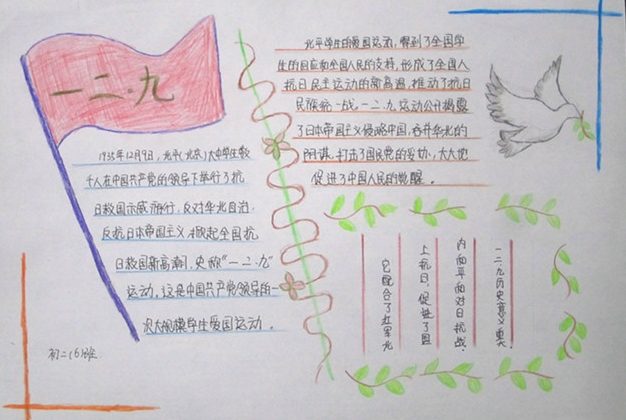 一二·九
1935年12月9日,北平(北京)大中学生数
千人在中国共产党的领导下举行了抗
日救国示威游行,反对华北自治,
反抗日本帝国主义,掀起全国抗
日救国新高潮,史称“一二·九”
运动,这是中国共产党领导的一
次大规模学生爱国运动。
初二(6)班
北平学生的爱国运动,得到了全国学
生的响应和全国人民的支持,形成了全国人
抗日民主运动的新高潮,推动了抗日
民族统一战。一二·九运动公开揭露
了日本帝国主义侵略中国,吞并华北的
阴谋,打击了国民党的妥协,大大地
促进了中国人民的觉醒。
一二·九历史意义重大,
内面平面对日抗战,
上抗日,促进了国
它配合了红军北